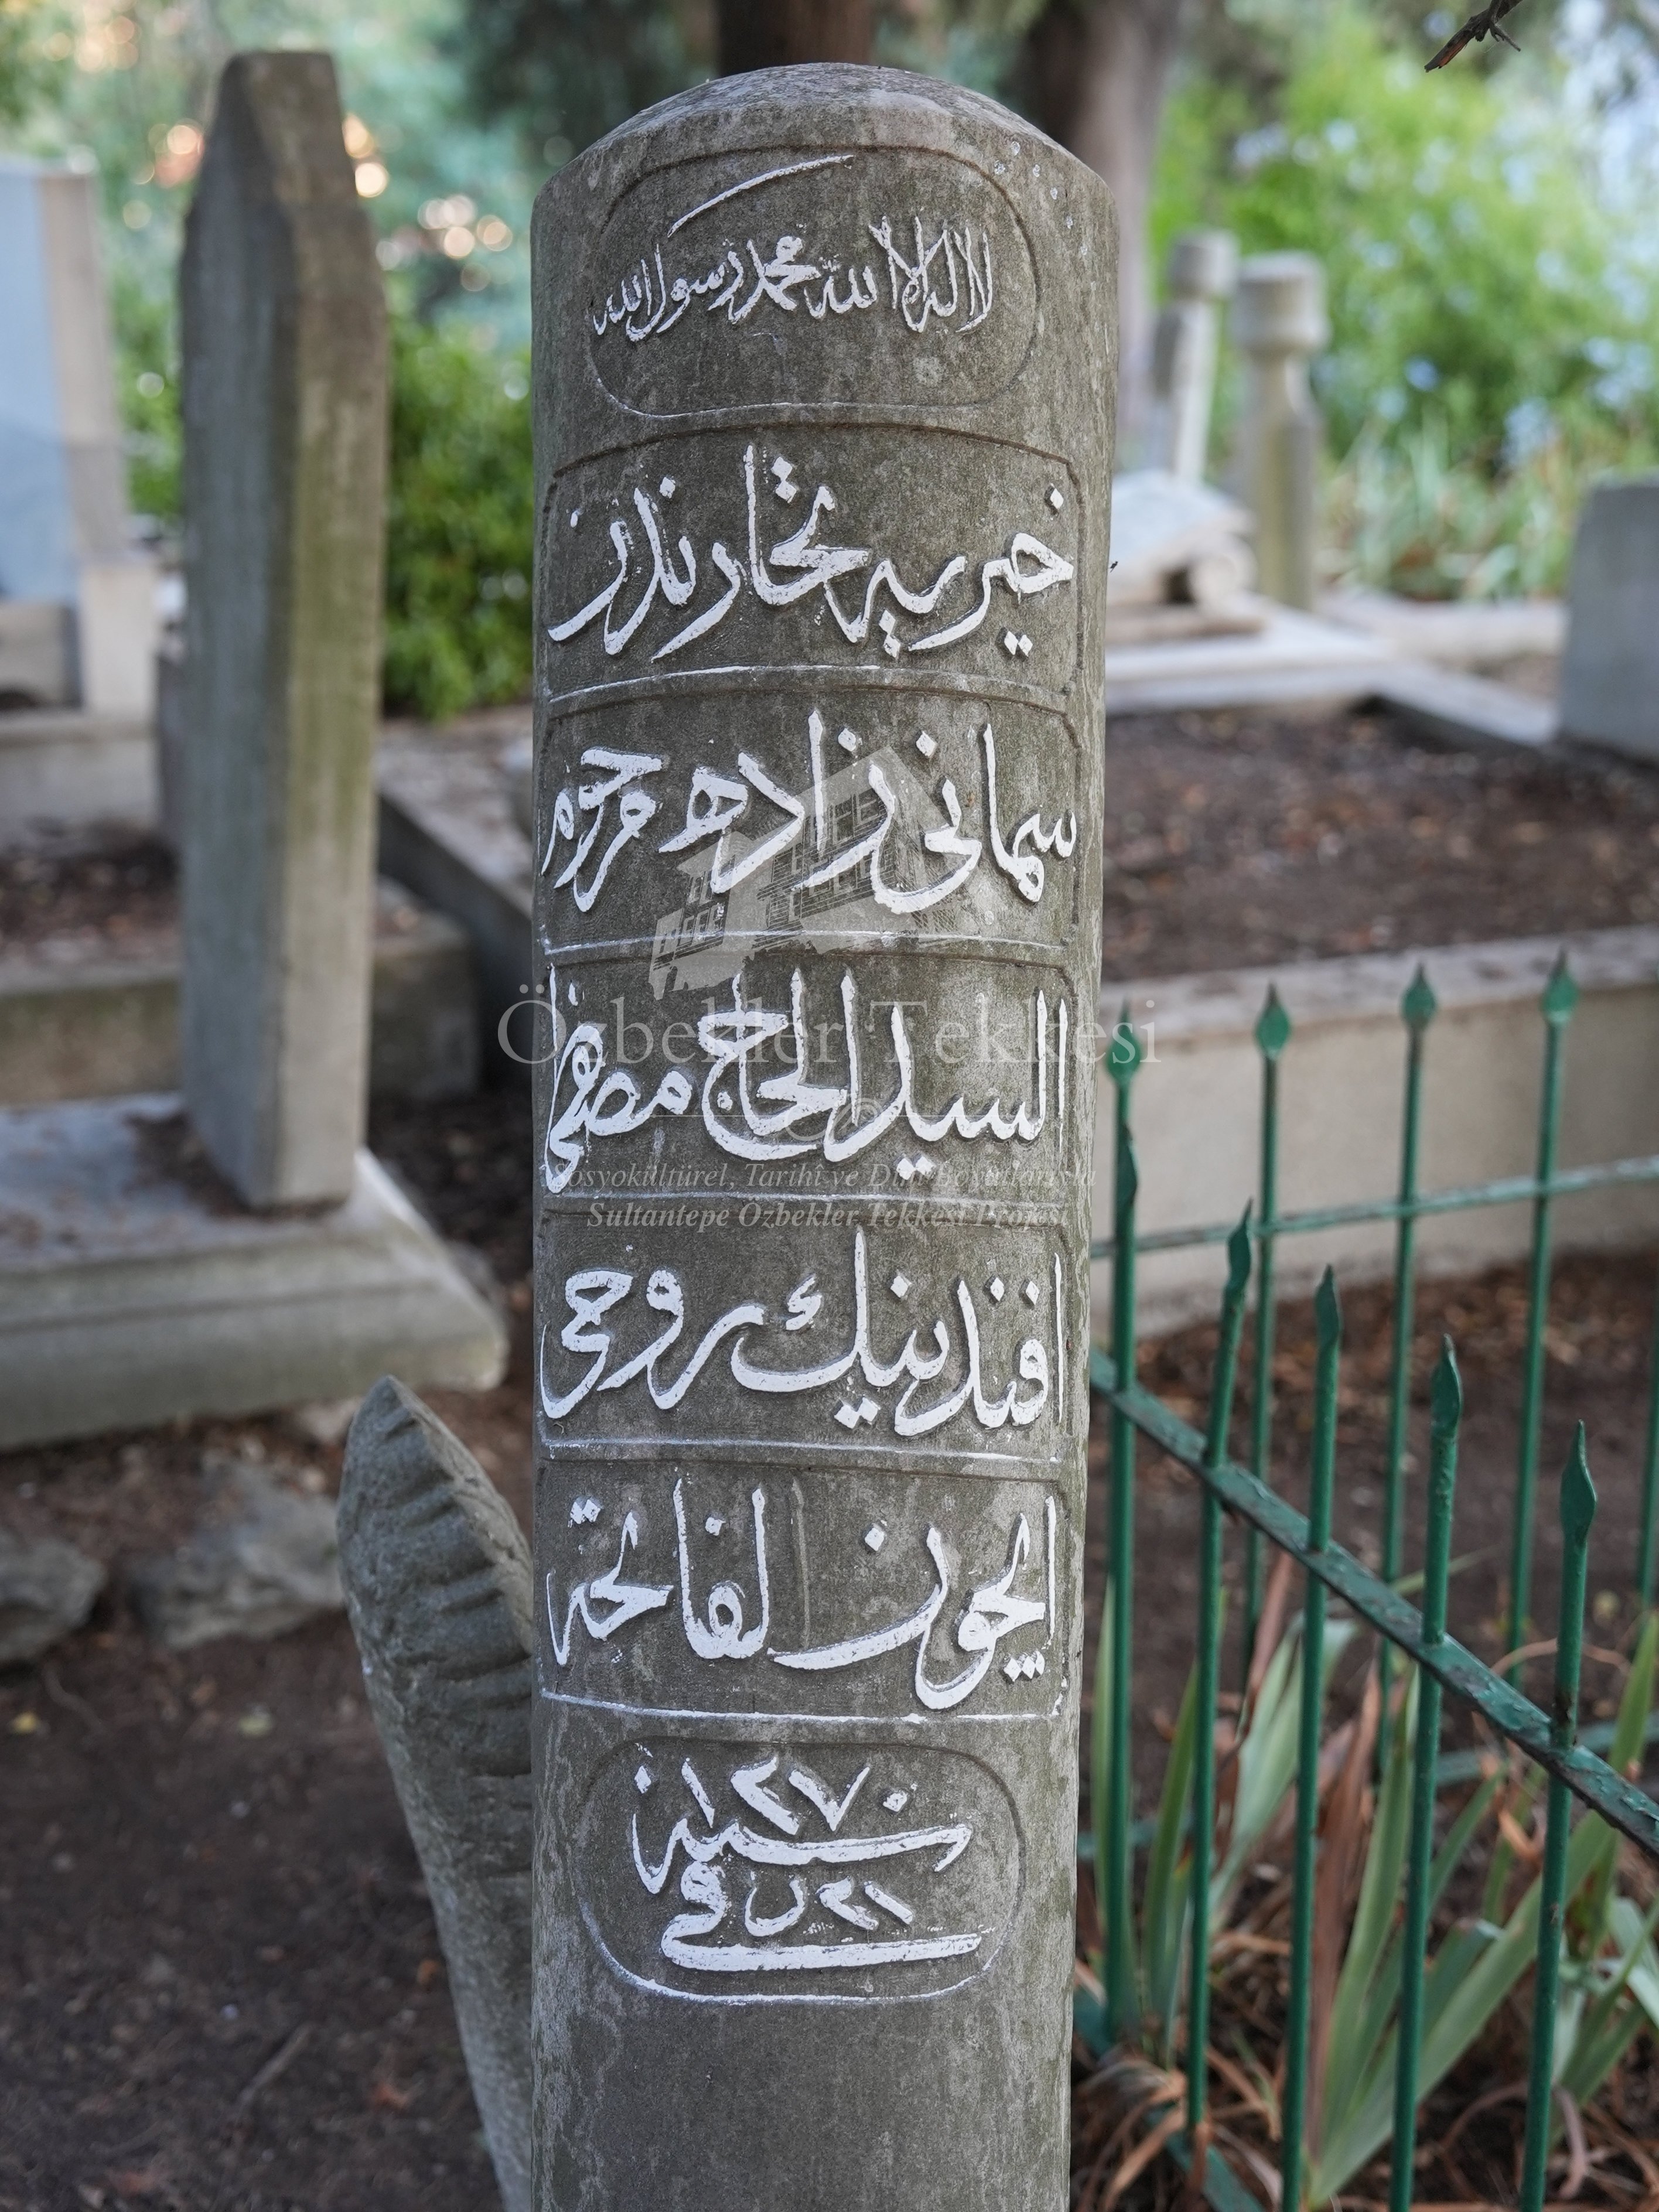 لا اله الا الله محمد رسول الله
خيريه تجارندن
سمانى زاده مرحوم
السيد الحاج مصطفى
افندينك روحى
ايچون الفاتحة
سنة ١٢٧٠
فى ٢١ ر
Özbekler Tekkesi
Sosyokültürel, Tarihî ve Dinî Boyutlarıyla
Sultantepe Özbekler Tekkesi Projesi